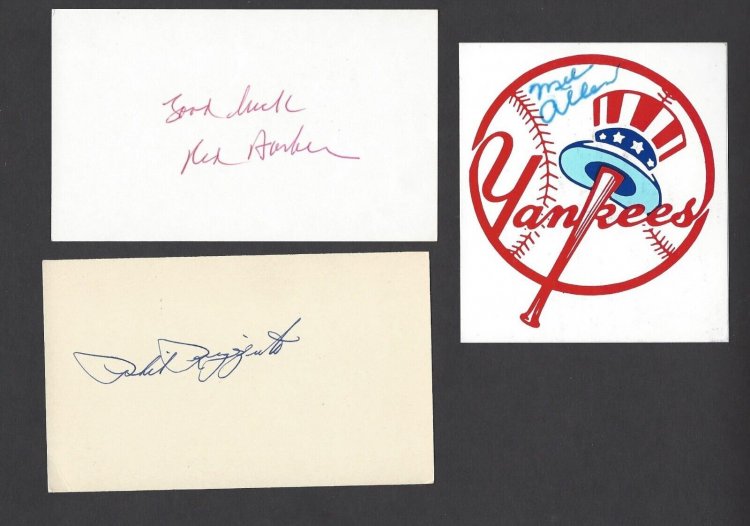 Good luck
Red Barber
Mel
Allen
Yankees
Phil Rizzuto